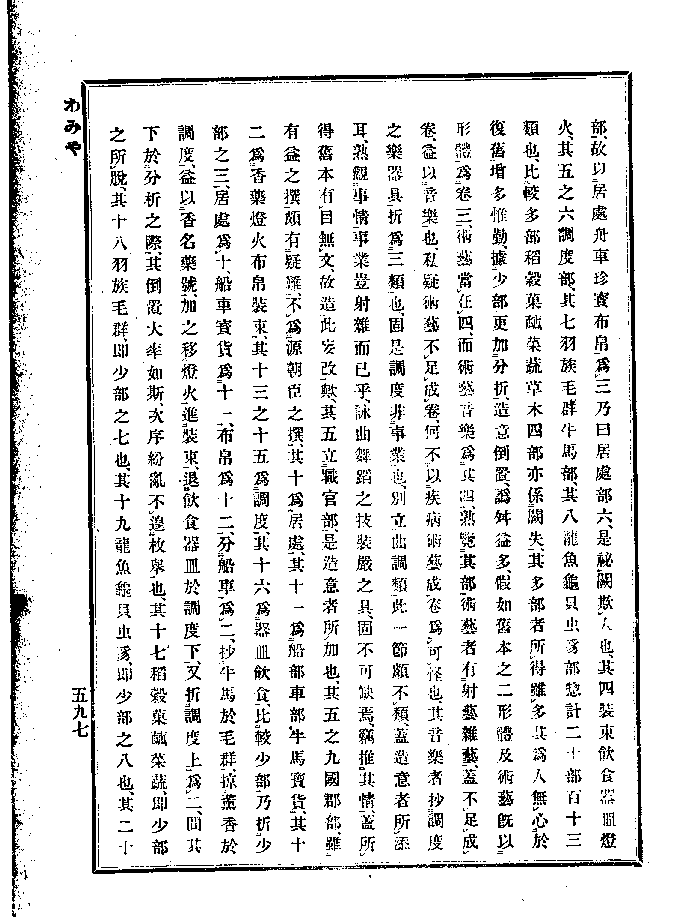 部、故以居處舟車珍寶布帛爲三、乃曰居處部六、是祕閣欺人也、其四裝束飮食器皿燈
火、其五之六調度部、其七羽族毛群牛馬部、其八龍魚龜貝虫豸部、惣計二十部百十三
類也、比較多部稻穀菓蓏菜蔬草木四部亦係闕失、其多部者所得雖多、其爲人無心於
復舊增多惟勤、據少部更加分折、造意倒置、譌舛益多、假如舊本之二形體及術藝、旣以
形體爲卷三、術藝當在四、而術藝音樂爲其四、熟覽其部術藝者、有射藝雜藝、蓋不足成
卷、益以音樂也、私疑術藝不足成卷、何不以疾病術藝成卷、爲可怪也、其音樂者抄調度
之樂器具折爲三類也、固是調度非事業也、別立曲調類、此一節頗不類、蓋造意者所添
耳、熟觀事情事業豈射雜而已乎、詠曲舞蹈之技裝嚴之具、固不可缺焉、竊推其情、蓋所
得舊本有目無文、故造此妄改歟、其五立職官部、是造意者所加也、其五之九國郡部、雖
有益之撰頗有疑、難不爲源朝臣之撰、其十爲居處、其十一爲船部車部牛馬寶貨、其十
二爲香藥燈火布帛裝束、其十三之十五爲調度、其十六爲器皿飮食、比較少部、乃折少
部之三、居處爲十、船車寶貨爲十一、布帛爲十二、分船車爲二、抄牛馬於毛群、掠薰香於
調度、益以香名藥號、加之移燈火進裝束、退飮食器皿於調度下、又折調度上爲二、間其
下於分析之際、其倒置大率如斯、次序紛亂不遑枚擧也、其十七稻穀菓蓏菜蔬、即少部
之所脫、其十八羽族毛群、即少部之七也、其十九龍魚龜貝虫豸、即少部之八也、其二十
わみや
五九七